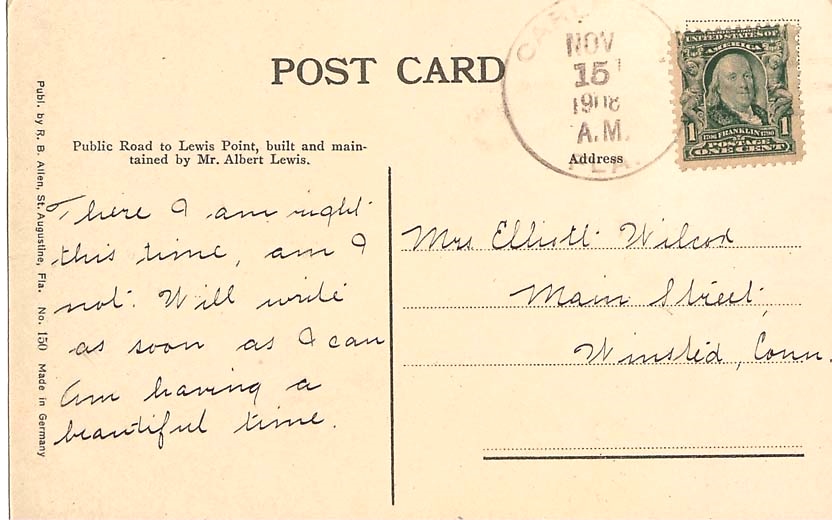 POST CARD
NOV
15
1908
A.M.
FLA.
UNITED STATES OF
AMERICA
1 1706 FRANKLIN 1790 1
POSTAGE
ONE CENT
Public Road to Lewis Point, built and main-
tained by Mr. Albert Lewis.
Address
There I am right
this time, am I
not. Will write
as soon as I can
Am having a
beautiful time.
Mrs Elliott Wilcox
Main Street,
Winsted, Conn.
Publ. by R. B. Allen, St. Augustine, Fla. No. 150 Made in Germany